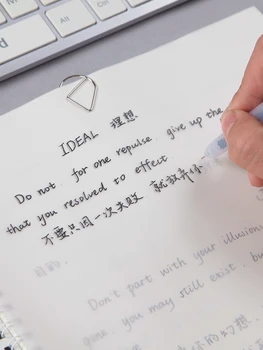 IDEAL 理想
Do not, for one repulse, give up the
that you resolved to effect
不要只因一次失败 就放弃你
Don't part with your illusions
you may still exist, bu
的幻想